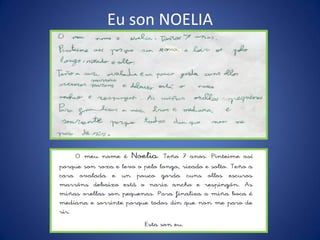 Eu son NOELIA
O meu nome é Noelia. Teño 7 anos.
Pinteime así porque son roxa e levo o pelo
longo, rizado e solto.
Teño a cara ovalada e un pouco gorda cuns ollos
escuros marróns e debaixo está o nariz
ancho e respingón. As miñas orellas pequenas.
Para finalizar a miña boca é mediana e
sorrinte porque todos din que non me
paro de rir.
O meu nome é Noelia. Teño 7 anos. Pinteime así
porque son roxa e levo o pelo longo, rizado e solto. Teño a
cara ovalada e un pouco gorda cuns ollos escuros
marróns debaixo está o nariz ancho e respingón. As
miñas orellas son pequenas. Para finalizar a miña boca é
mediana e sorrinte porque todos din que non me paro de
rir.
Esta son eu.